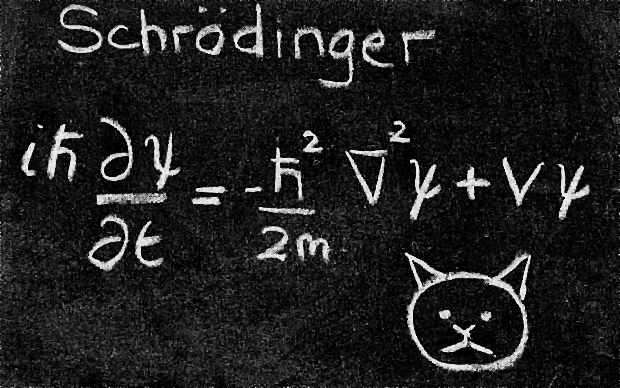 Schrödinger
iħ ∂ψ/∂t = -ħ²/2m ∇²ψ + Vψ